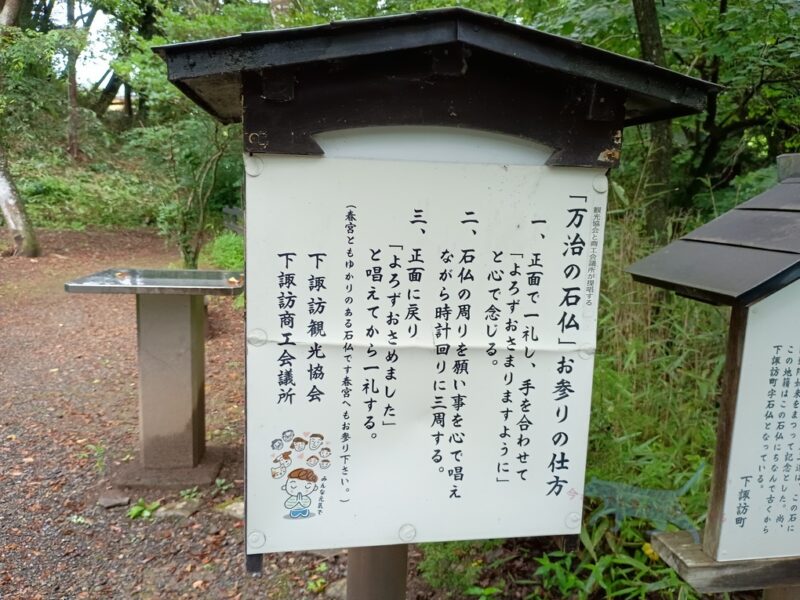 観光協会と商工会議所が提唱する
「万治の石仏」お参りの仕方
一、正面で一礼し、手を合わせて
「よろずおさまりますように」
と心で念じる。
二、石仏の周りを願い事を心で唱え
ながら時計回りに三周する。
三、正面に戻り
「よろずおさめました」
と唱えてから一礼する。
（春宮ともゆかりのある石仏です春宮へもお参り下さい。）
下諏訪観光協会
下諏訪商工会議所
みんな元気で
をまつって記念とした。尚、
この地籍はこの石仏にちなんで古くから
下諏訪町字石仏となっている。
下諏訪町